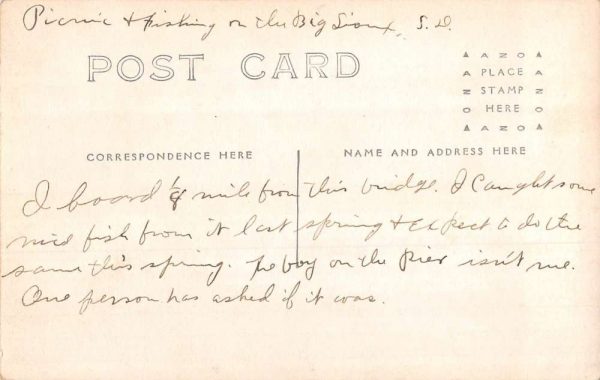 Picnic & Fishing on the Big Sioux, S. D.
POST CARD
▲ A Z O ▲
A PLACE A
N STAMP N
O HERE O
▲ A Z O ▲
CORRESPONDENCE HERE
NAME AND ADDRESS HERE
I board ¼ mile from this bridge. I Caught some
nice fish from it last spring & expect to do the
same this spring. The boy on the Pier isn't me.
One person has asked if it was.